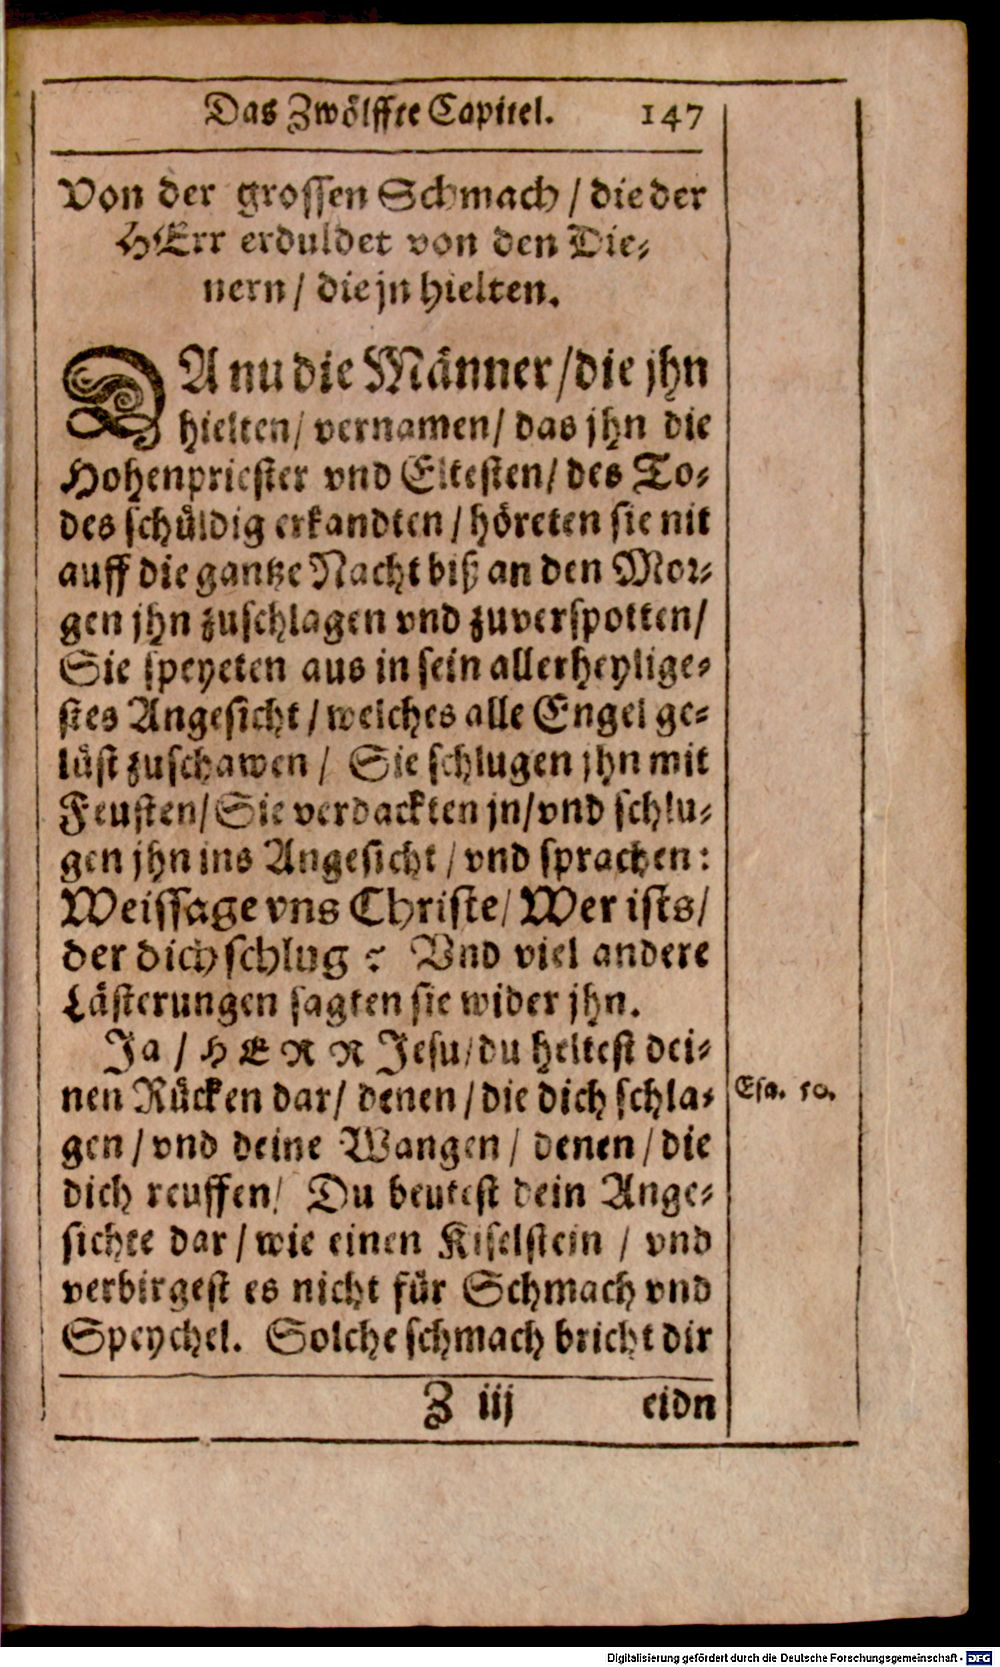 Das Zwölffte Capitel. 147
Von der grossen Schmach / die der
HErr erduldet von den Die-
nern / die jn hielten.
DA nu die Männer / die jhn
hielten / vernamen / das jhn die
Hohenpriester vnd Eltesten / des To-
des schüldig erkandten / höreten sie nit
auff die gantze Nacht biß an den Mor-
gen jhn zuschlagen vnd zuverspotten /
Sie speyeten aus in sein allerheylige-
stes Angesicht / welches alle Engel ge-
lüst zuschawen / Sie schlugen jhn mit
Feusten / Sie verdackten jn / vnd schlu-
gen jhn ins Angesicht / vnd sprachen:
Weissage vns Christe / Wer ists /
der dich schlug? Vnd viel andere
Lästerungen sagten sie wider jhn.
Ja / HERR Jesu / du heltest dei-
nen Rücken dar / denen / die dich schla-
gen / vnd deine Wangen / denen / die
dich reuffen / Du beutest dein Ange-
sichte dar / wie einen Kiselstein / vnd
verbirgest es nicht für Schmach vnd
Speychel. Solche schmach bricht dir
Esa. 50.
Z iij eidn
Digitalisierung gefördert durch die Deutsche Forschungsgemeinschaft - DFG